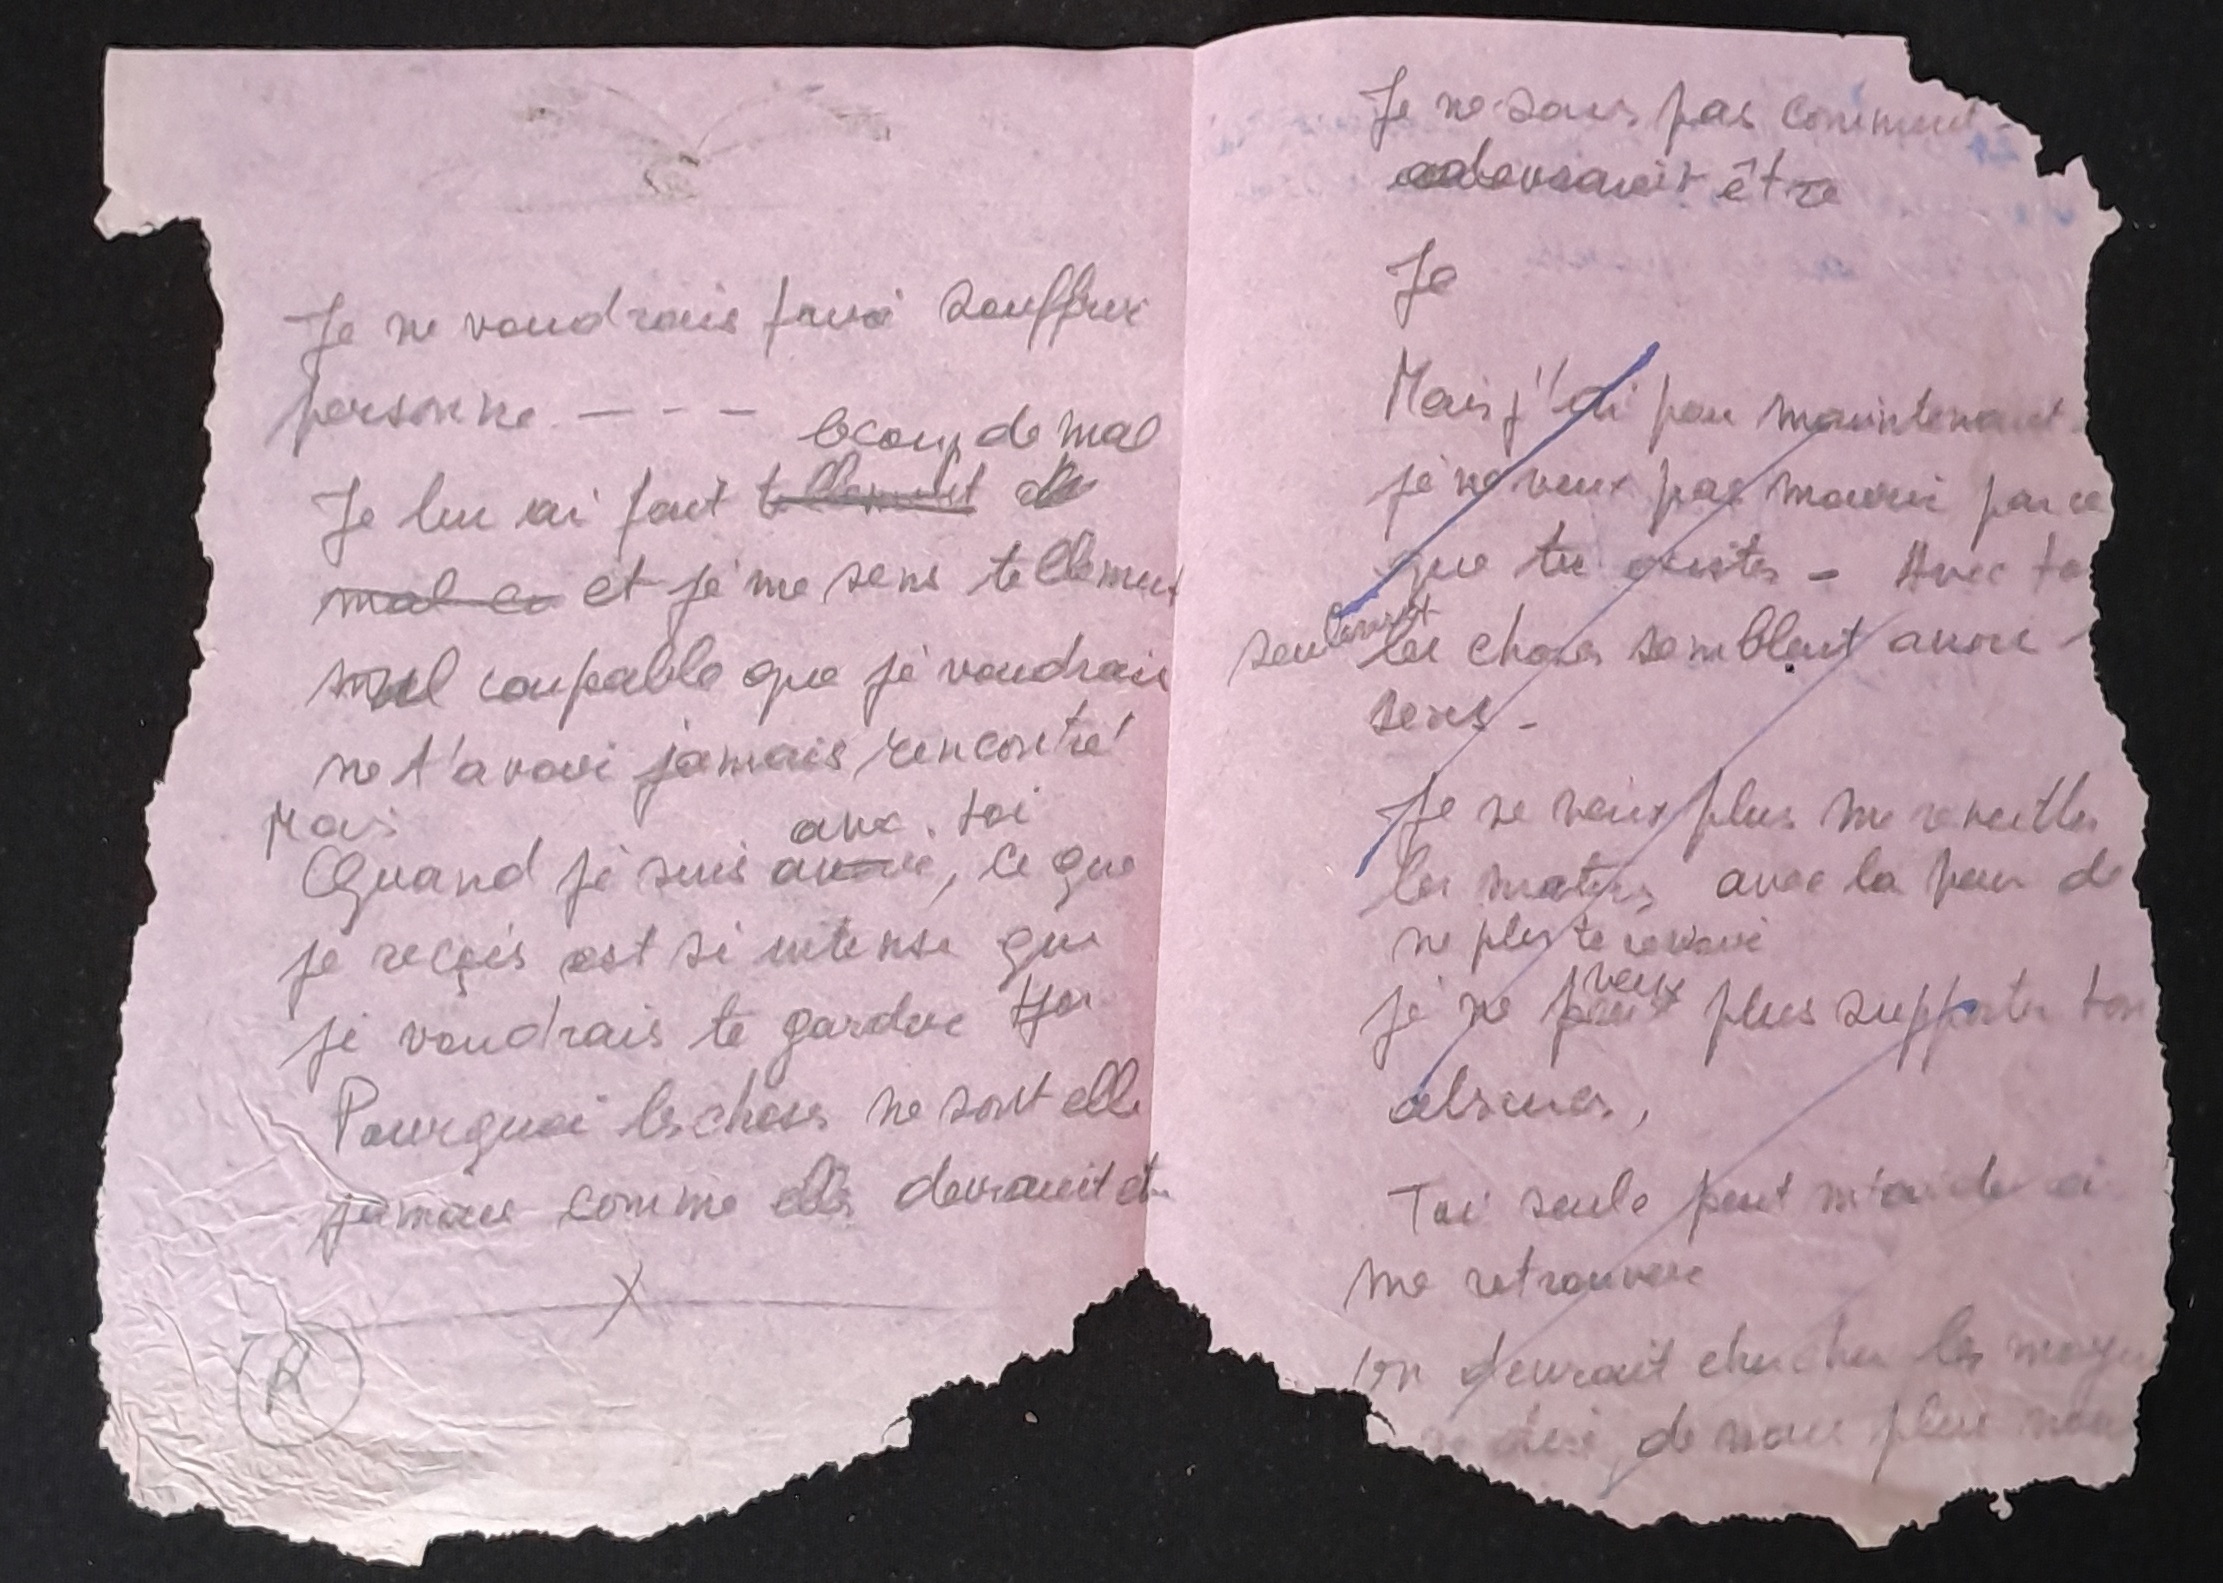 Je ne voudrais faire souffrir
personne - - -
bcoup de mal
Je lui ai fait tellement de
mal et je me sens tellement
mal coupable que je voudrais
ne t'avoir jamais rencontré
Mais
avec toi
Quand je suis, ce que
je reçois est si intense que
je voudrais te garder
Pourquoi les choses ne sont elle
jamais comme elles devraient
X
R
Je ne sais pas comment
devrait être
Je
Mais j'ai peur maintenant
je ne veux pas mourir parce
que tu existes - Avec
seulement les choses semblent avoir
sens -
Je ne veux plus me reveiller
les matins avec la peur de
ne plus te revoir
veux
je ne peux plus supporter ton
absences,
Toi seule peut m'aider a
me retrouver
on devrait chercher les
de nous plus